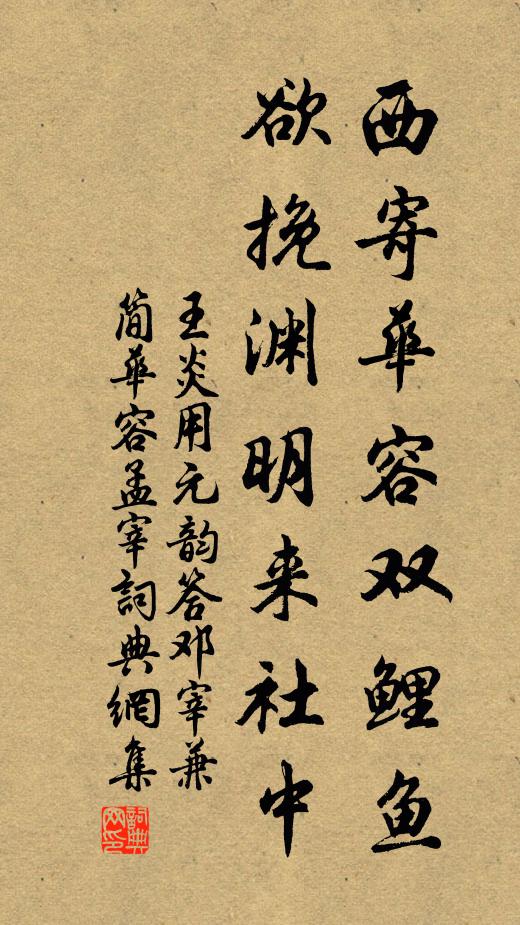 西寄華容双鲤鱼
欲挽渊明来社中
王炎用元韵答邓宰兼
简華容孟宰詞典網集
詞典网印